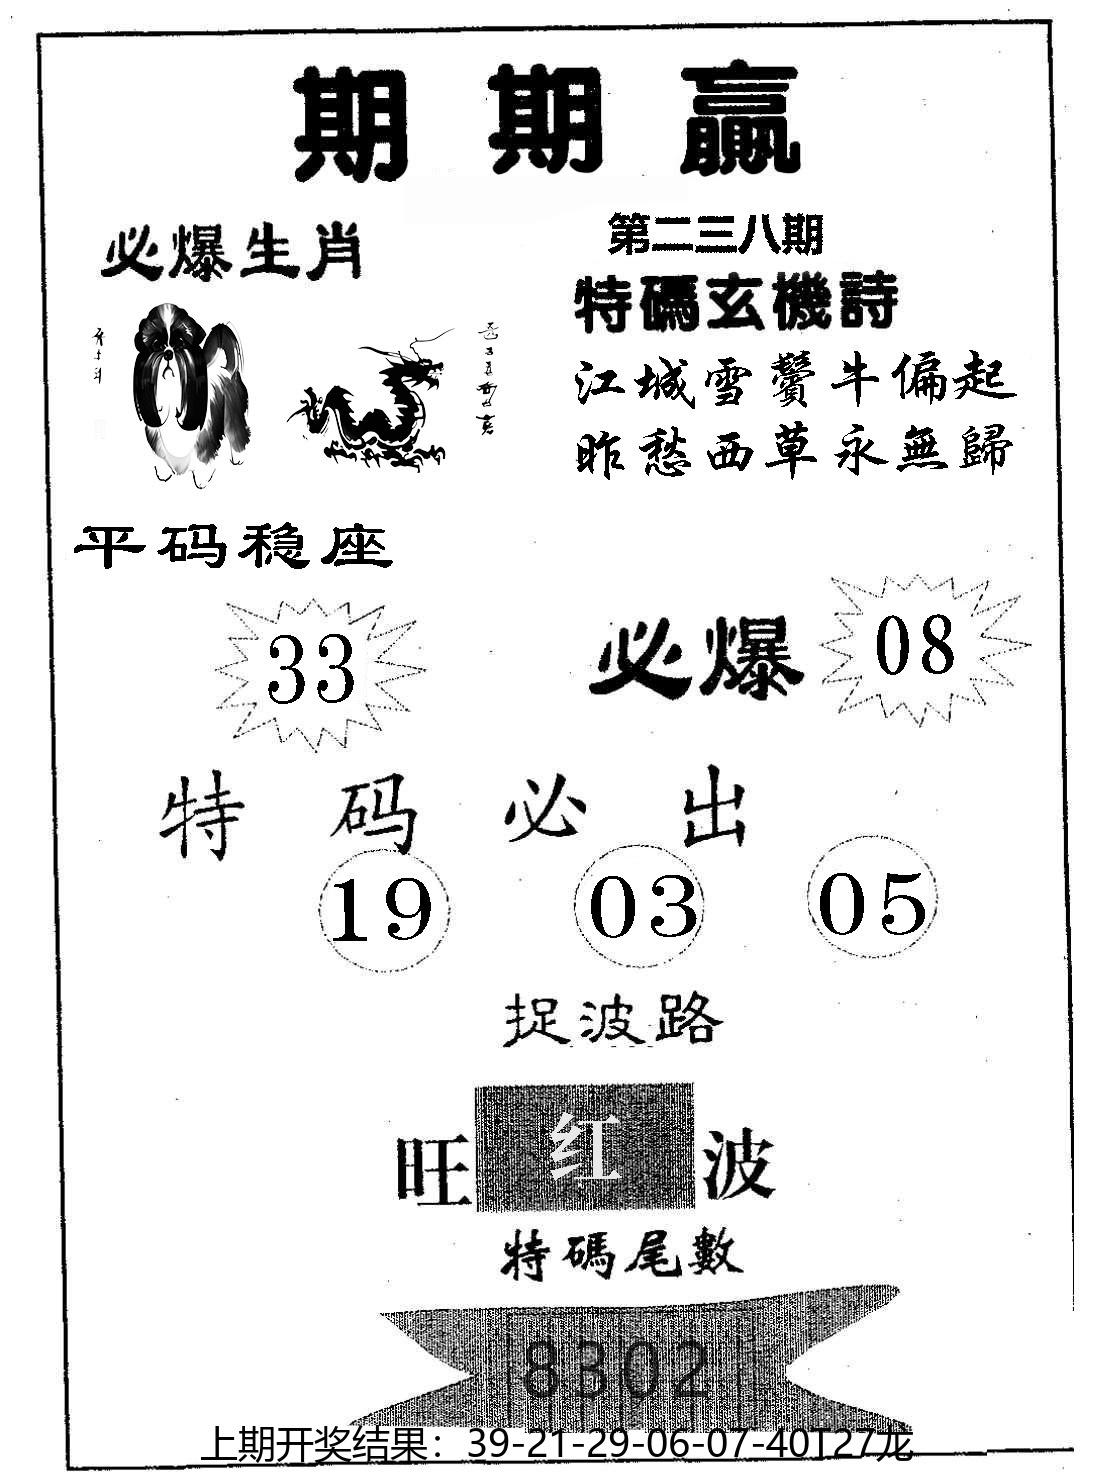 期期贏
必爆生肖
第二三八期
特碼玄機詩
江城雪鬢牛偏起
昨愁西草永無歸
平码稳座
33
必爆
08
特码必出
19 03 05
捉波路
旺红波
特碼尾數
8302
上期开奖结果：39-21-29-06-07-40T27龙